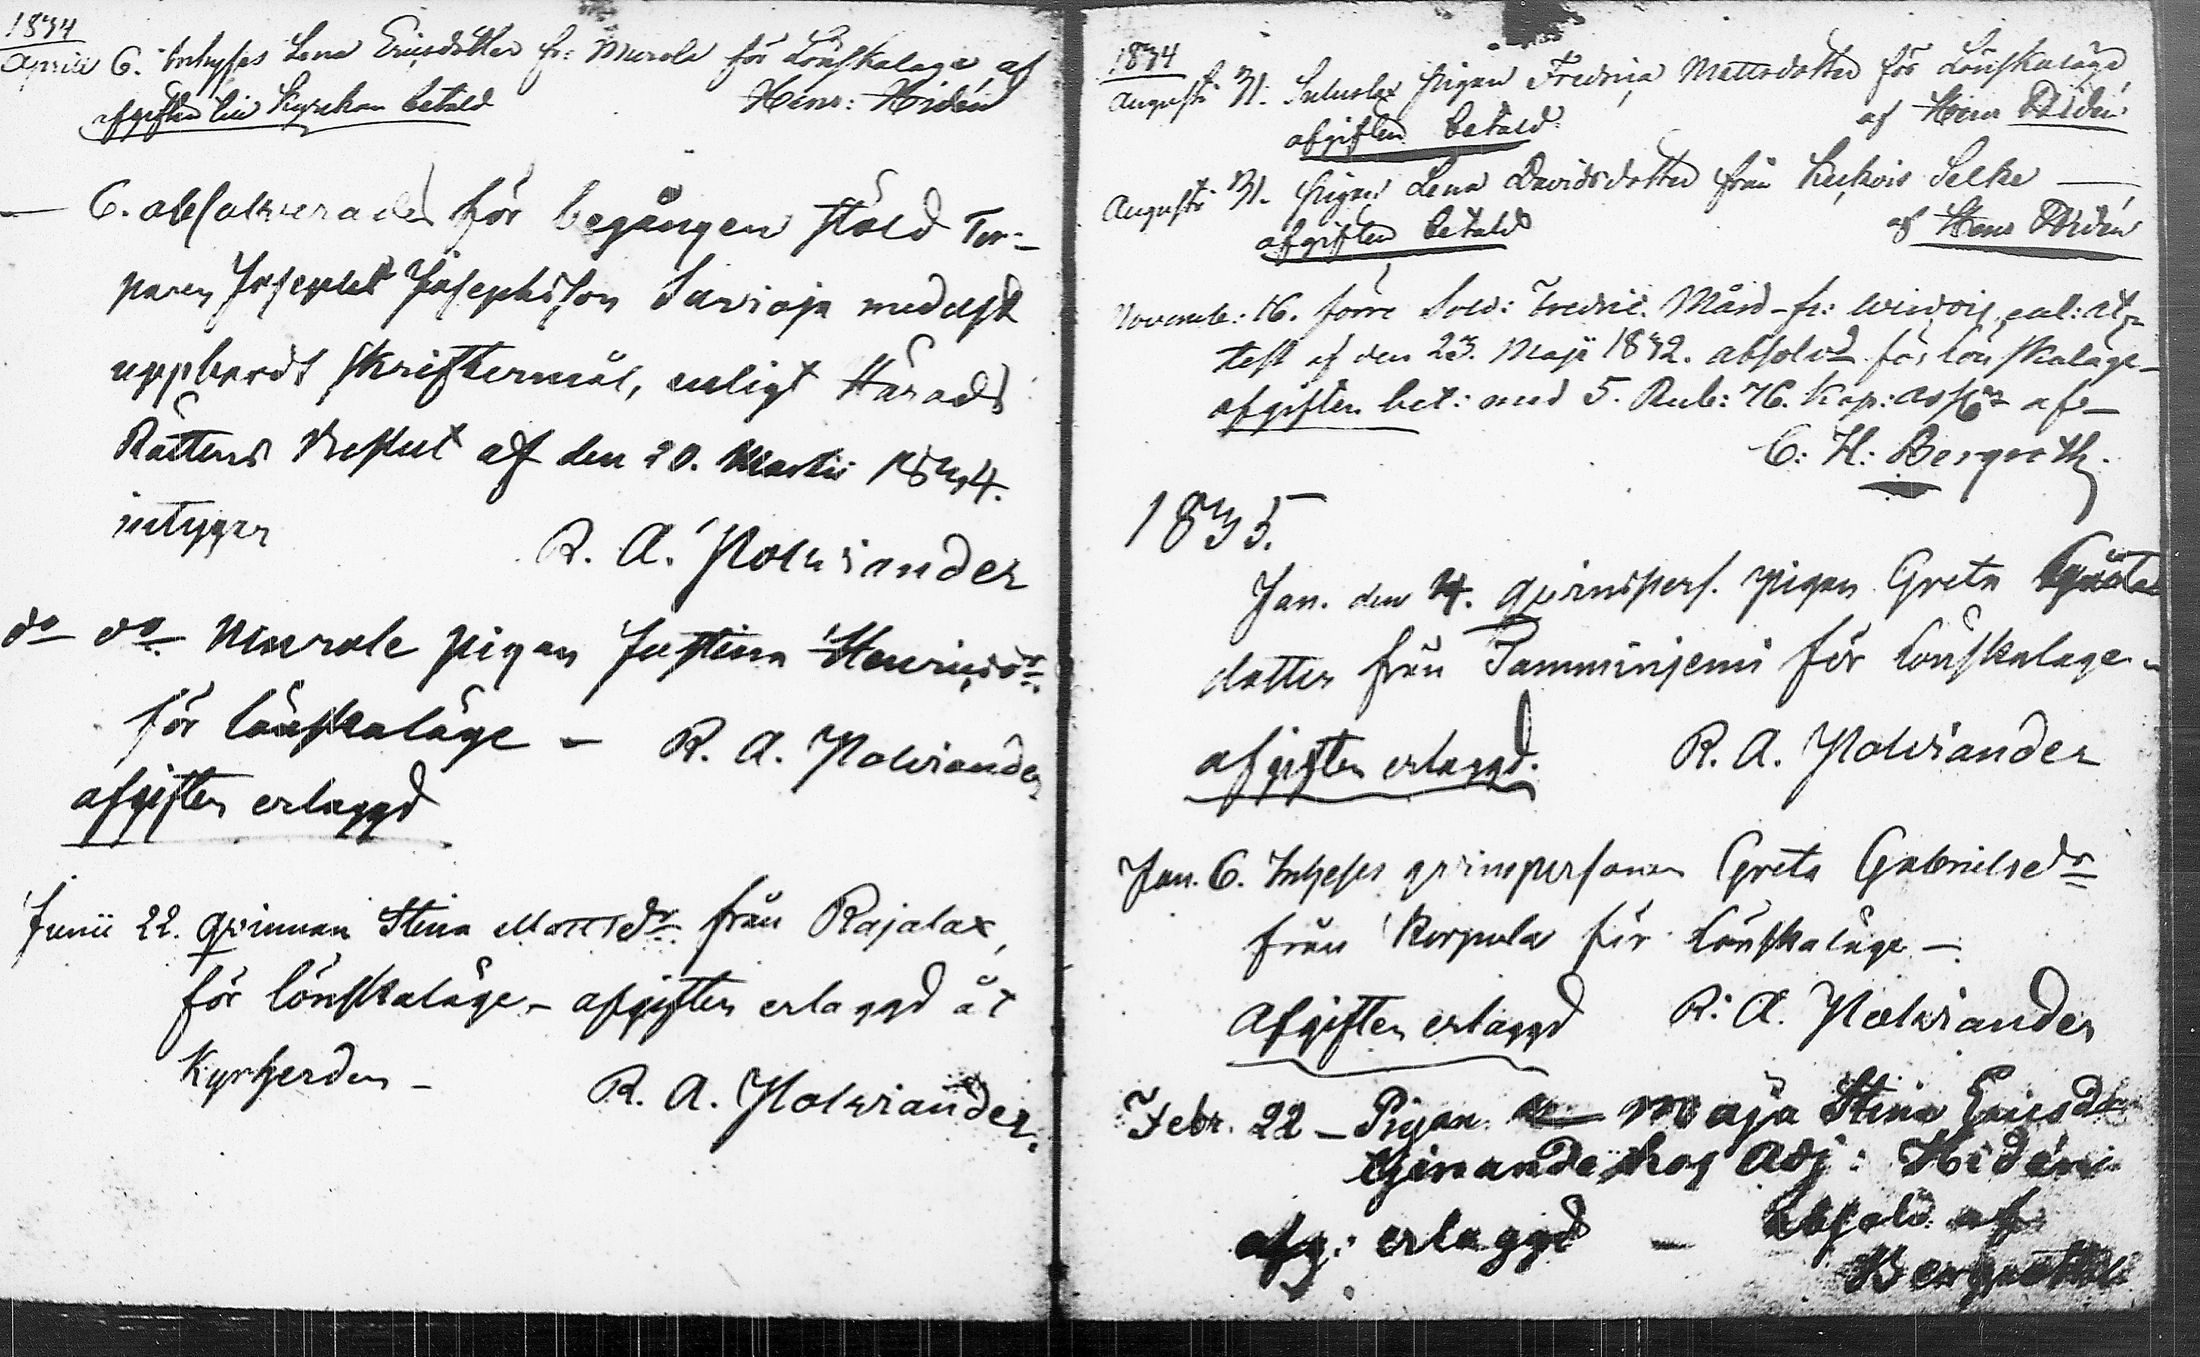 1834
Aprill 6. Inhyses Lena Ericsdotter fr: Murola för Lönskaläge af
afgiften till Kyrckan betald Henr: Hidén
— 6. absolverades för begången stöld Tor-
paren Joseph Josephsson Savioja medelst
uppbart skriftermål, enligt Härads
Rättens Resolut af den 20. Martii 1834.
intygar
R. A. Polviander
do do Murole pigan Justina Henricsdr
för lönskaläge — R. A. Polviander
afgiften erlaggd
Junii 22. qvinnan Stina Mattsdr från Rajalax,
för lönskaläge — afgiften erlaggd åt
Kyrkherden —
R. A. Polviander.
1834
Augusti 31. pigan Fredrica Mattsdotter för Lönskaläge
afgiften betald af Henr Hidén
Augusti 31. pigan Lena Davidsdotter från Kukois Selke —
afgiften betald af Henr Hidén
Novemb: 16. förre Sold: Fredric Mård fr: enl: at-
test af den 23. Maji 1832. absolvd för lönskaläge —
afgiften bet: med 5. Rub: 76. Kop: af —
C: H: Bergroth.
1835.
Jan. den 4. qvinspers. pigan Greta Gustafs
dotter från Tamminjemi för lönskaläge —
afgiften erlaggd. R. A. Polviander
Jan. 6. Inhyses qvinspersonen Greta Gabrielsdr
från Korpula för lönskaläge —
Afgiften erlaggd R. A. Polviander
Febr. 22 — Pigan Maja Stina Ericsdr
tjenande hos Adj: Hidén
afg: erlaggd — absolv: af
Bergroth